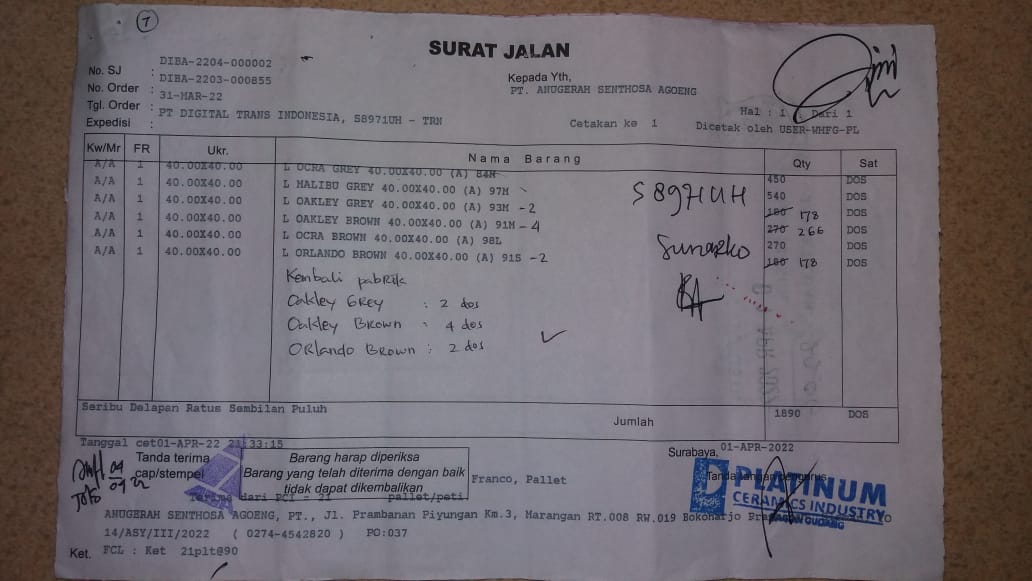 7
SURAT JALAN
No. SJ : DIBA-2204-000002
No. Order : DIBA-2203-000855
Tgl. Order : 31-MAR-22
Expedisi : PT DIGITAL TRANS INDONESIA, S8971UH - TRN
Kepada Yth,
PT. ANUGERAH SENTHOSA AGOENG
Cetakan ke 1
Hal : 1 Dari 1
Dicetak oleh USER-WHFG-PL
Kw/Mr FR Ukr. Nama Barang Qty Sat
A/A 1 40.00X40.00 L OCRA GREY 40.00X40.00 (A) 84M 450 DOS
A/A 1 40.00X40.00 L MALIBU GREY 40.00X40.00 (A) 97M 540 DOS
A/A 1 40.00X40.00 L OAKLEY GREY 40.00X40.00 (A) 93M -2 180 178 DOS
A/A 1 40.00X40.00 L OAKLEY BROWN 40.00X40.00 (A) 91M -4 270 266 DOS
A/A 1 40.00X40.00 L OCRA BROWN 40.00X40.00 (A) 98L 270 DOS
A/A 1 40.00X40.00 L ORLANDO BROWN 40.00X40.00 (A) 91S -2 180 178 DOS
S 8971 UH
Kembali pabrik
Oakley Grey : 2 dos
Oakley Brown : 4 dos
Orlando Brown : 2 dos
Seribu Delapan Ratus Sembilan Puluh
Jumlah 1890 DOS
Tanggal cet01-APR-22 21:33:15
Tanda terima
cap/stempel
Barang harap diperiksa
Barang yang telah diterima dengan baik
tidak dapat dikembalikan
Franco, Pallet
Surabaya, 01-APR-2022
Tanda tangan
PLATINUM
CERAMICS INDUSTRY
GUDANG
Terima dari PCI - 21 pallet/peti
ANUGERAH SENTHOSA AGOENG, PT., Jl. Prambanan Piyungan Km.3, Marangan RT.008 RW.019 Bokoharjo
14/ASY/III/2022 ( 0274-4542820 ) PO:037
Ket. FCL : Ket 21plt@90